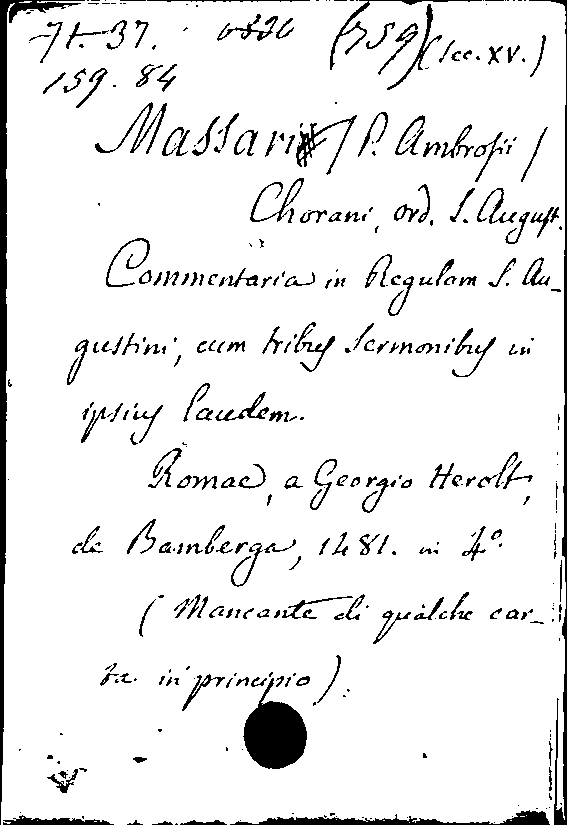 71. 37. 0830 (759) (Sec. XV.)
159. 84
Massari / P. Ambrosii /
Chorani, ord. S. August.
Commentaria in Regulam S. Au-
gustini, cum tribus Sermonibus in
ipsius laudem.
Romae, a Georgio Herolt,
de Bamberga, 1481. in 4º.
(Mancante di qualche car-
ta in principio).